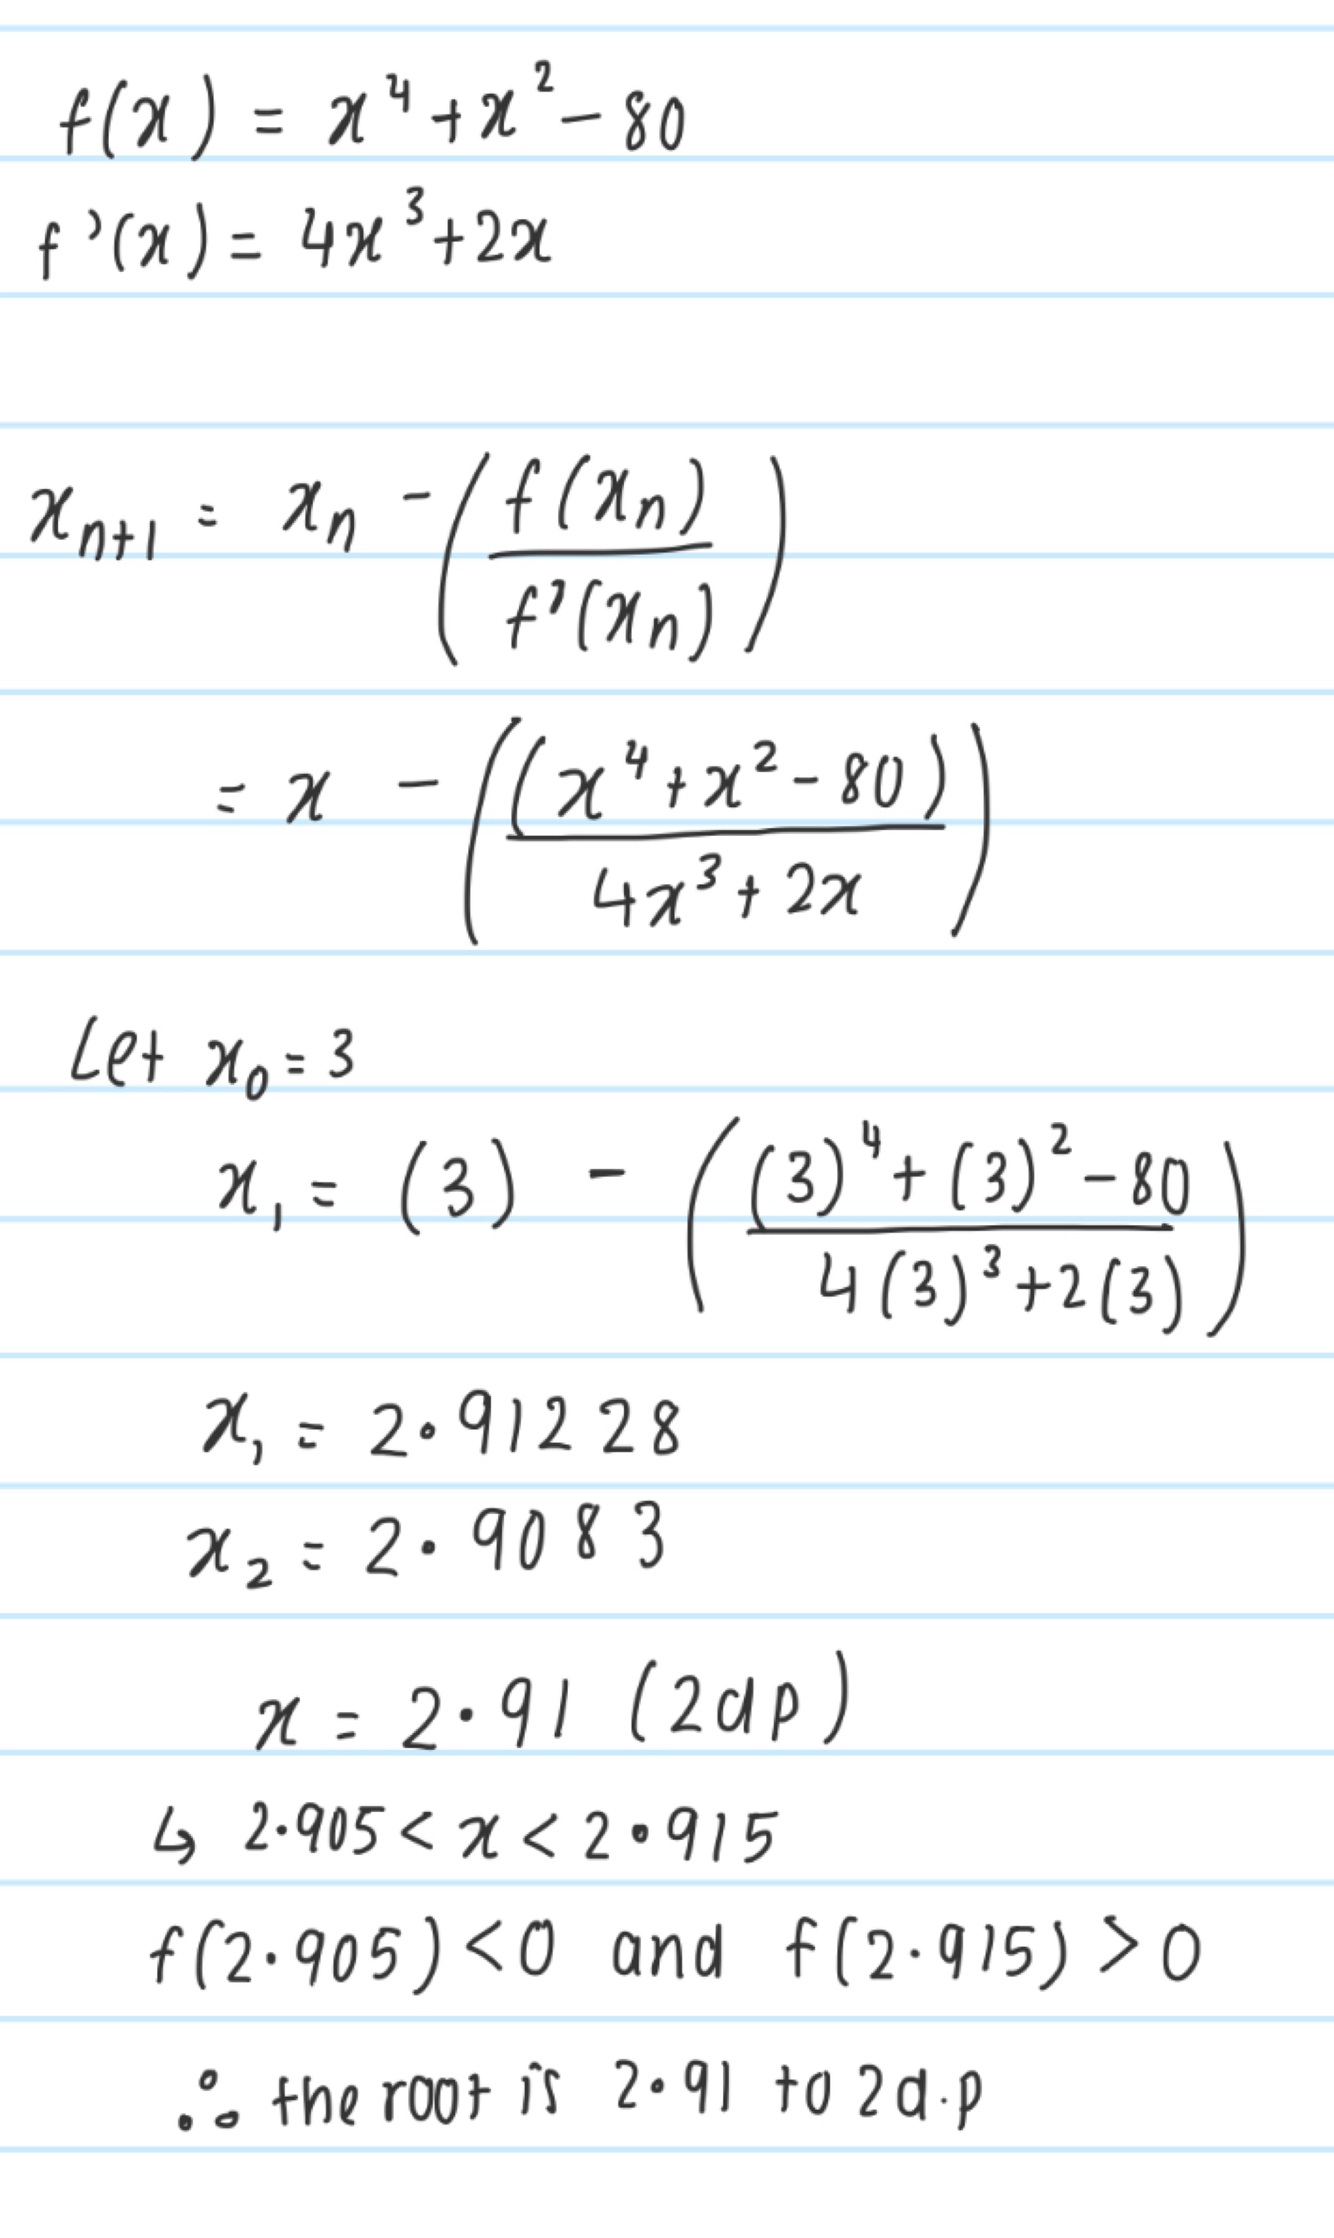 f(x) = x⁴ + x² - 80
f'(x) = 4x³ + 2x
xₙ₊₁ = xₙ - (f(xₙ) / f'(xₙ))
= x - ((x⁴ + x² - 80) / 4x³ + 2x)
Let x₀ = 3
x₁ = (3) - ((3)⁴ + (3)² - 80 / 4(3)³ + 2(3))
x₁ = 2.91228
x₂ = 2.9083
x = 2.91 (2dp)
↳ 2.905 < x < 2.915
f(2.905) < 0 and f(2.915) > 0
∴ the root is 2.91 to 2d.p